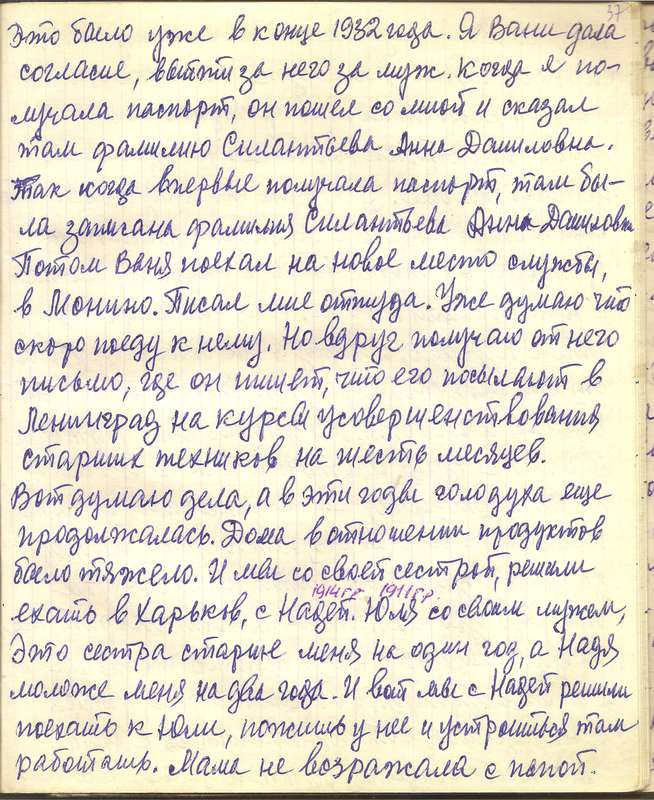 37
Это было уже в конце 1932 года. Я Вани дала
согласие, выйти за него за муж. Когда я по-
лучала паспорт, он пошел со мной и сказал
там фамилию Силантьева Анна Даниловна.
Так когда впервые получала паспорт, там бы-
ла записана фамилия Силантьева Анна Даниловна
Потом Ваня поехал на новое место службы,
в Монино. Писал мне оттуда. Уже думаю что
скоро поеду к нему. Но вдруг получаю от него
письмо, где он пишет, что его посылают в
Ленинград на курсы усовершенствования
старших техников на шесть месяцев.
Вот думаю дела, а в эти годы голодуха еще
продолжалась. Дома в отношении продуктов
было тяжело. И мы со своей сестрой, решили
1914 г.р. 1911 г.р.
ехать в Харьков, с Надей. Юля со своим мужем,
Это сестра старше меня на один год, а Надя
моложе меня на два года. И вот мы с Надей решили
поехать к Юли, пожить у нее и устроиться там
работать. Мама не возражала с папой.